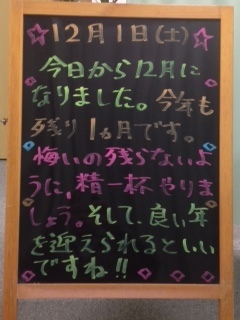 ☆12月1日(土)☆
今日から12月に
なりました。今年も
残り1ヵ月です。
悔いの残らないよ
うに、精一杯やりま
しょう。そして、良い年
を迎えられるといい
ですね!!